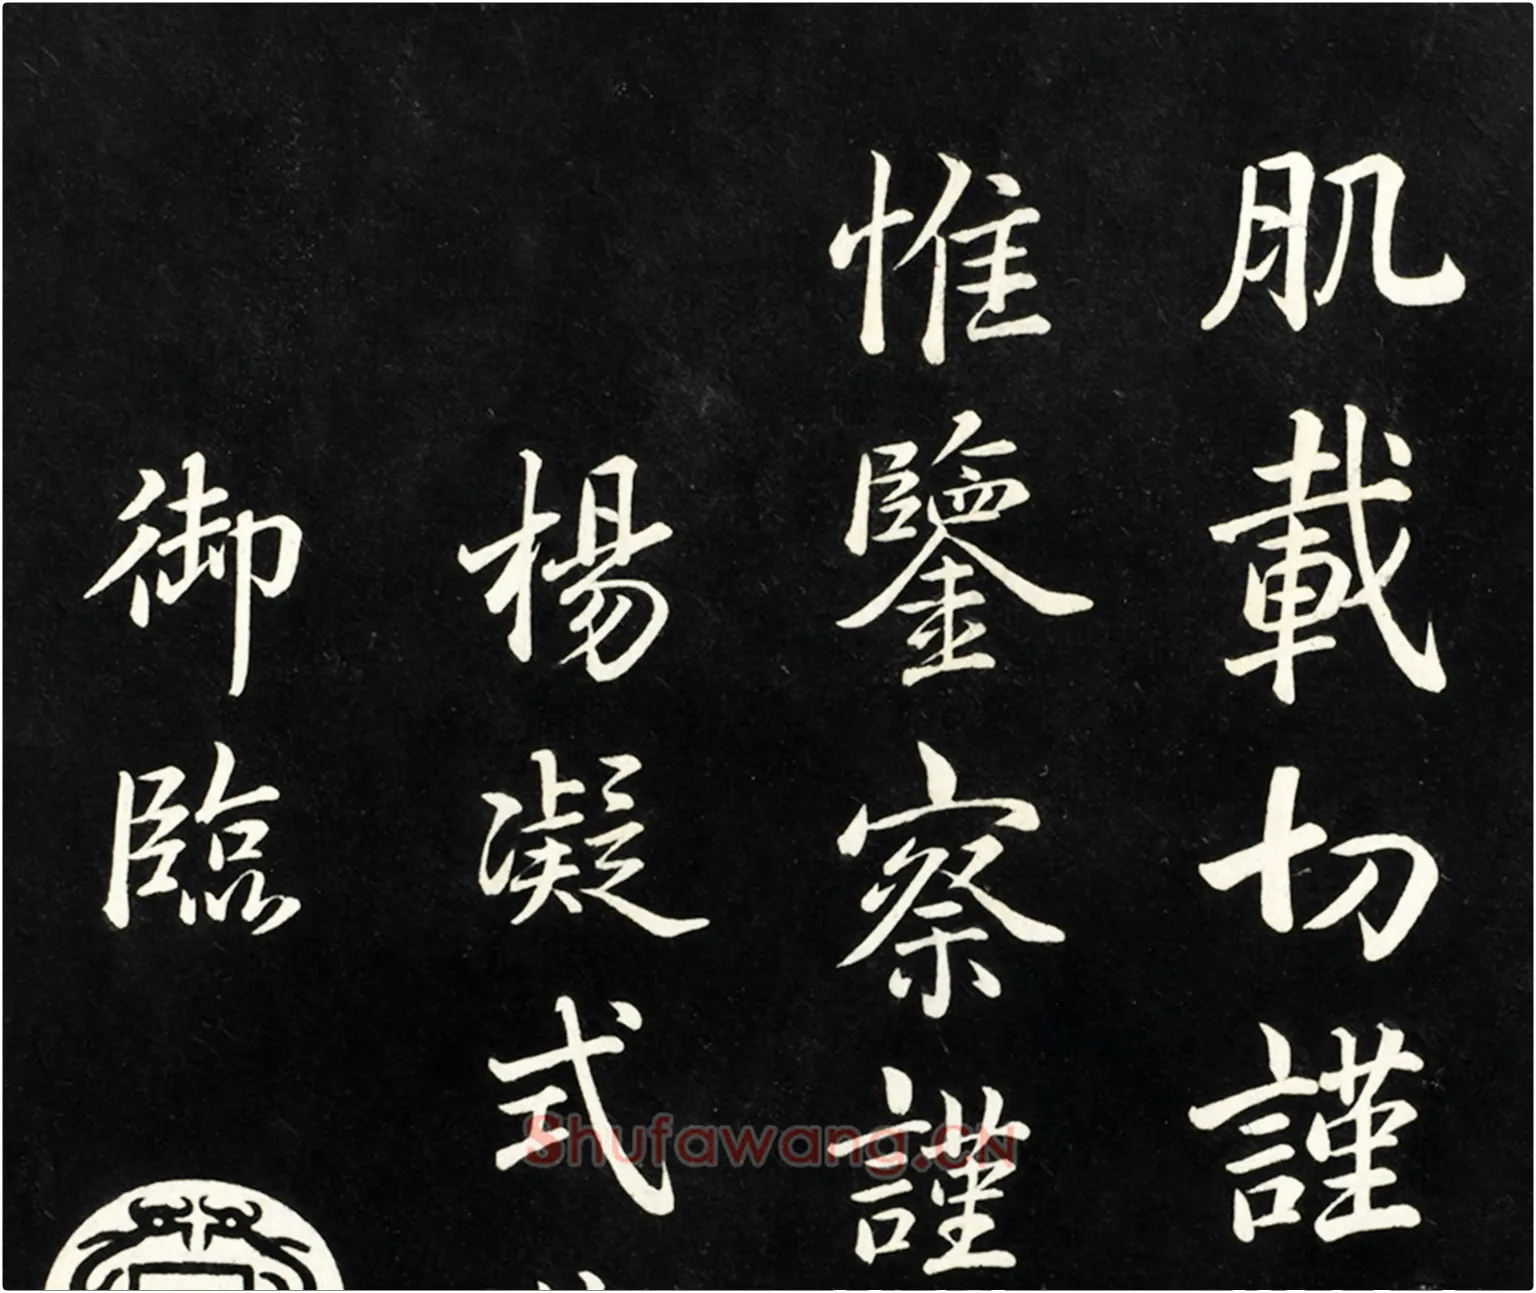 肌載切謹
惟鑒察謹
楊凝式
御臨
Shufawang.CN